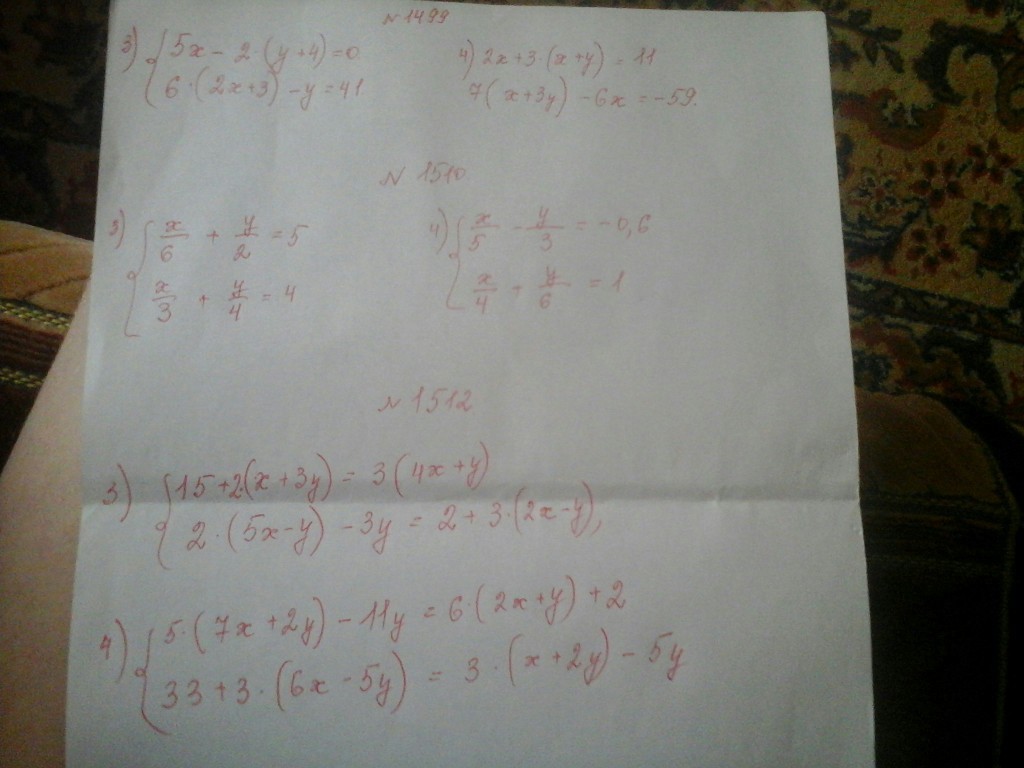 №1499
3) { 5x - 2·(y+4)=0
6·(2x+3) - y = 41
4) 2x+3·(x+y) = 11
7(x+3y) - 6x = -59.
№ 1510
3) { x/6 + y/2 = 5
x/3 + y/4 = 4
4) { x/5 - y/3 = -0,6
x/4 + y/6 = 1
№1512
3) { 15+2(x+3y) = 3(4x+y)
2·(5x-y) - 3y = 2+3·(2x-y),
4) { 5·(7x+2y) - 11y = 6·(2x+y)+2
33+3·(6x-5y) = 3·(x+2y) - 5y